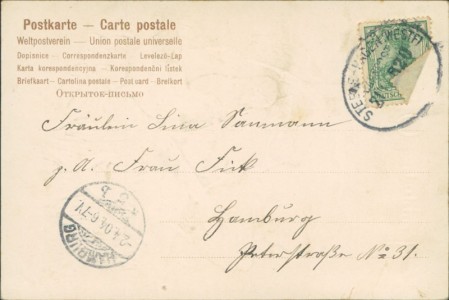 Postkarte — Carte postale
Weltpostverein — Union postale universelle
Dopisnice - Correspondenzkarte - Levelező-Lap
Karta korespondencyjna — Korespondenční lístek
Briefkaart - Cartolina postale - Post card - Brefkort
Открытое-письмо
Fräulein Lina Sanmann
z. A. Frau Fick
Hamburg
Peterstraße No 31.
HAMBURG
2.4.04.6-7V.